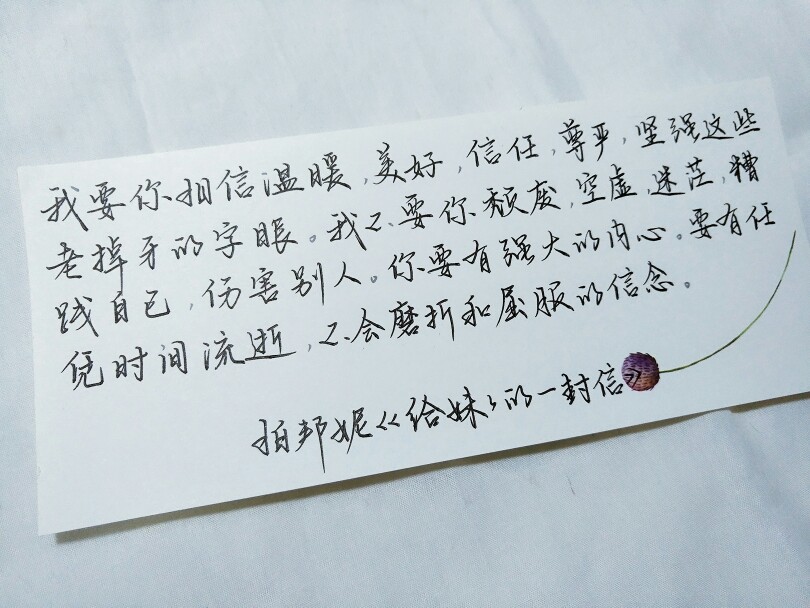 我要你相信温暖,美好,信任,尊严,坚强这些
老掉牙的字眼。我不要你颓废,空虚,迷茫,糟
践自己,伤害别人。你要有强大的内心。要有任
凭时间流逝,不会磨折和屈服的信念。
柏邦妮《给妹妹的一封信》